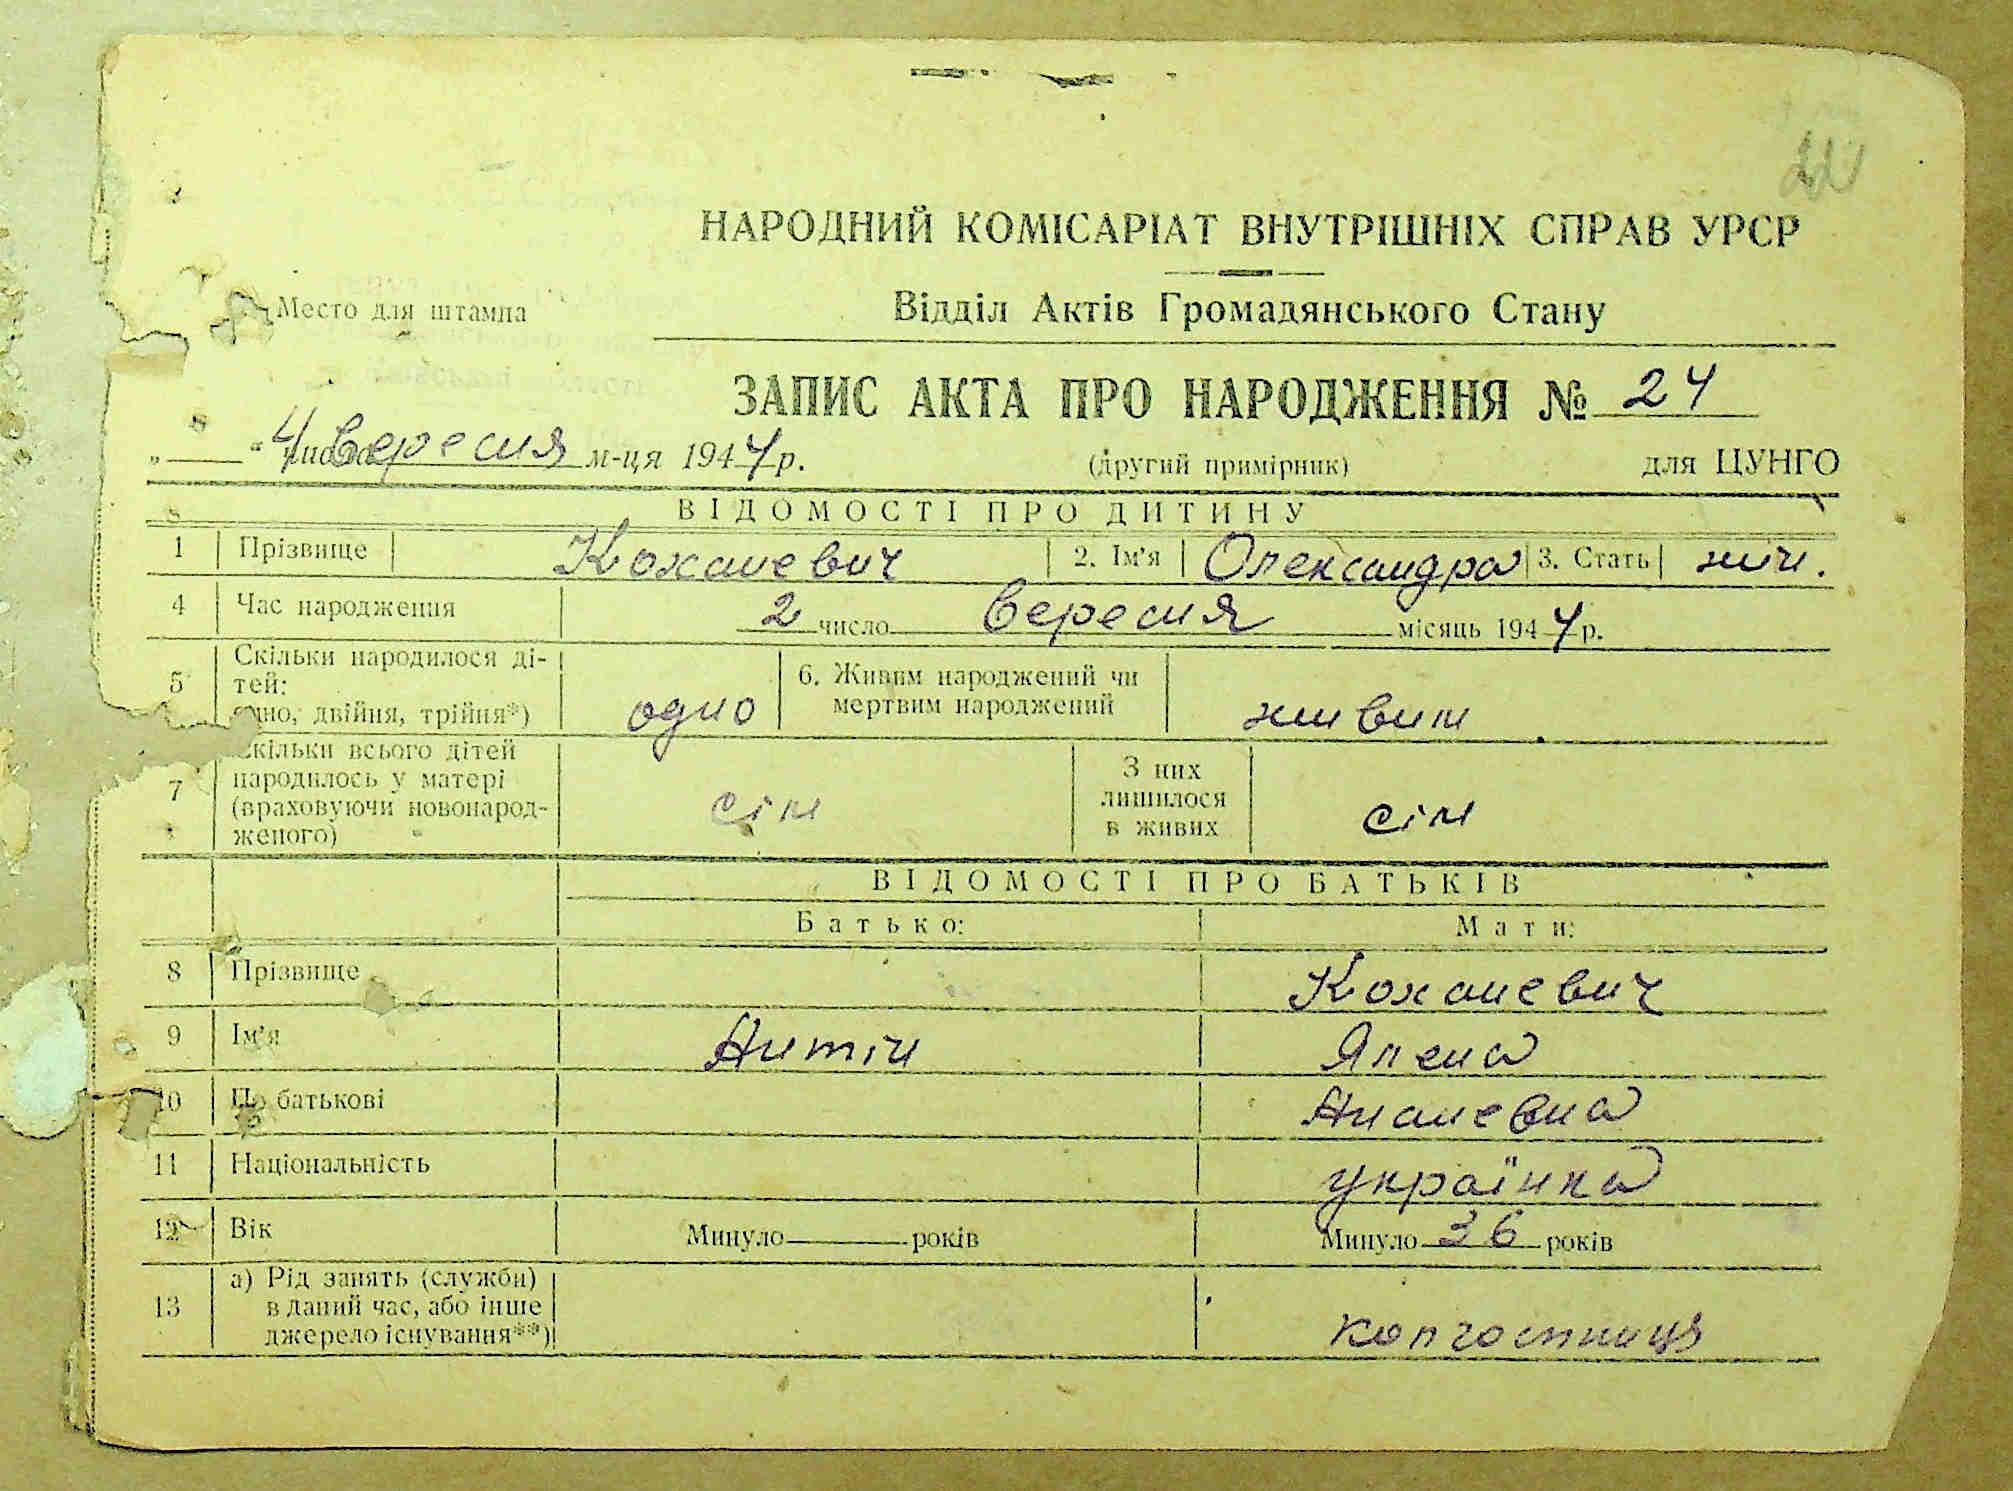 НАРОДНИЙ КОМІСАРІАТ ВНУТРІШНІХ СПРАВ УРСР
Место для штампа
Відділ Актів Громадянського Стану
ЗАПИС АКТА ПРО НАРОДЖЕННЯ № 24
„ “ 4 Вересня м-ця 1944 р. (другий примірник) для ЦУНГО
ВІДОМОСТІ ПРО ДИТИНУ
1 Прізвище Коханевич 2. Ім’я Олександра 3. Стать жін.
4 Час народження 2 число Вересня місяць 1944 р.
5 Скільки народилося ді-
тей:
одно, двійня, трійня*) одно
6. Живим народжений чи
мертвим народжений живим
7 Скільки всього дітей
народилось у матері
(враховуючи новонарод-
женого) сім
З них
лишилося
в живих сім
ВІДОМОСТІ ПРО БАТЬКІВ
Батько: Мати:
8 Прізвище Коханевич
9 Ім’я Антін Ялена
10 По батькові Ананевна
11 Національність українка
12 Вік Минуло років Минуло 36 років
13 а) Рід занять (служби)
в даний час, або інше
джерело існування**) колгоспниця